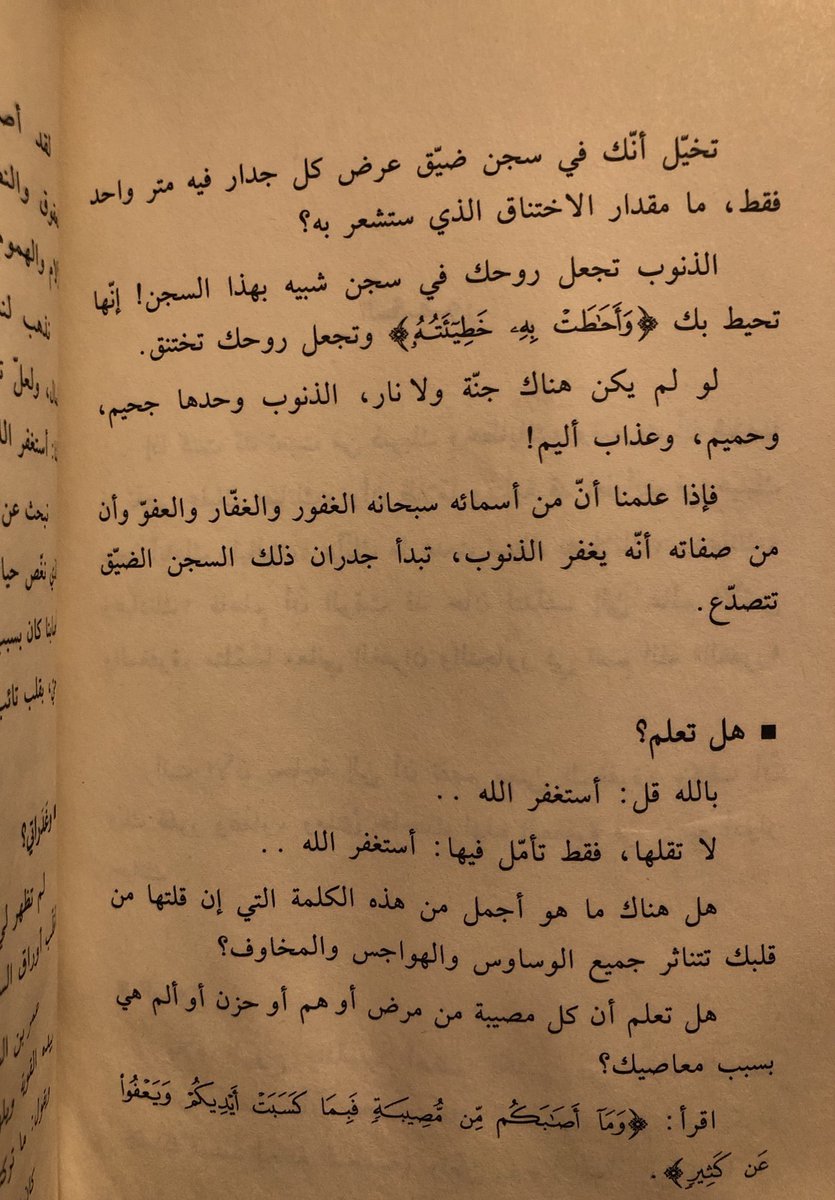 تخيّل أنّك في سجن ضيّق عرض كل جدار فيه متر واحد
فقط، ما مقدار الاختناق الذي ستشعر به؟
الذنوب تجعل روحك في سجن شبيه بهذا السجن! إنّها
تحيط بك ﴿وَأَحَٰطَتۡ بِهِۦ خَطِيٓـَٔتُهُۥ﴾ وتجعل روحك تختنق.
لو لم يكن هناك جنّة ولا نار، الذنوب وحدها جحيم،
وحميم، وعذاب أليم!
فإذا علمنا أنّ من أسمائه سبحانه الغفور والغفّار والعفوّ وأن
من صفاته أنّه يغفر الذنوب، تبدأ جدران ذلك السجن الضيّق
تتصدّع.
■ هل تعلم؟
بالله قل: أستغفر الله ..
لا تقلها، فقط تأمّل فيها: أستغفر الله ..
هل هناك ما هو أجمل من هذه الكلمة التي إن قلتها من
قلبك تتناثر جميع الوساوس والهواجس والمخاوف؟
هل تعلم أن كل مصيبة من مرض أو هم أو حزن أو ألم هي
بسبب معاصيك؟
اقرأ: ﴿وَمَآ أَصَٰبَكُم مِّن مُّصِيبَةٖ فَبِمَا كَسَبَتۡ أَيۡدِيكُمۡ وَيَعۡفُواْ
عَن كَثِيرٖ﴾.
لقد
والهموم
نذهب
ولعلّ
أستغفر
نبحث عن
نغّص
كان بسبب
بقلب تائب
لم تظهر
أوراق